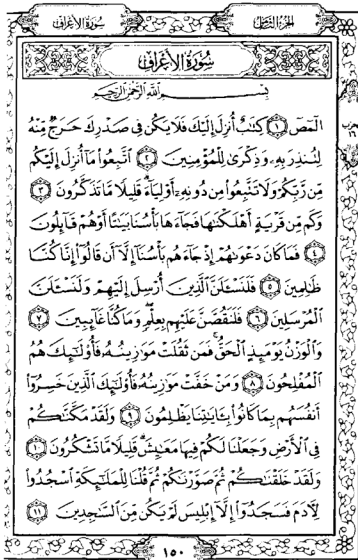 سُورَةُ الأَعْرَافِ
الجُزْءُ الثَّامِنُ
سُورَةُ الأَعْرَافِ
بِسْمِ اللَّهِ الرَّحْمَٰنِ الرَّحِيمِ
الٓمٓصٓ ١ كِتَٰبٌ أُنزِلَ إِلَيْكَ فَلَا يَكُن فِى صَدْرِكَ حَرَجٌ مِّنْهُ
لِتُنذِرَ بِهِۦ وَذِكْرَىٰ لِلْمُؤْمِنِينَ ٢ ٱتَّبِعُوا۟ مَآ أُنزِلَ إِلَيْكُم
مِّن رَّبِّكُمْ وَلَا تَتَّبِعُوا۟ مِن دُونِهِۦٓ أَوْلِيَآءَ ۗ قَلِيلًا مَّا تَذَكَّرُونَ ٣
وَكَم مِّن قَرْيَةٍ أَهْلَكْنَٰهَا فَجَآءَهَا بَأْسُنَا بَيَٰتًا أَوْ هُمْ قَآئِلُونَ
٤ فَمَا كَانَ دَعْوَىٰهُمْ إِذْ جَآءَهُم بَأْسُنَآ إِلَّآ أَن قَالُوٓا۟ إِنَّا كُنَّا
ظَٰلِمِينَ ٥ فَلَنَسْـَٔلَنَّ ٱلَّذِينَ أُرْسِلَ إِلَيْهِمْ وَلَنَسْـَٔلَنَّ
ٱلْمُرْسَلِينَ ٦ فَلَنَقُصَّنَّ عَلَيْهِم بِعِلْمٍ ۖ وَمَا كُنَّا غَآئِبِينَ ٧
وَٱلْوَزْنُ يَوْمَئِذٍ ٱلْحَقُّ ۚ فَمَن ثَقُلَتْ مَوَٰزِينُهُۥ فَأُو۟لَٰٓئِكَ هُمُ
ٱلْمُفْلِحُونَ ٨ وَمَنْ خَفَّتْ مَوَٰزِينُهُۥ فَأُو۟لَٰٓئِكَ ٱلَّذِينَ خَسِرُوٓا۟
أَنفُسَهُم بِمَا كَانُوا۟ بِـَٔايَٰتِنَا يَظْلِمُونَ ٩ وَلَقَدْ مَكَّنَّٰكُمْ
فِى ٱلْأَرْضِ وَجَعَلْنَا لَكُمْ فِيهَا مَعَٰيِشَ ۗ قَلِيلًا مَّا تَشْكُرُونَ ١٠
وَلَقَدْ خَلَقْنَٰكُمْ ثُمَّ صَوَّرْنَٰكُمْ ثُمَّ قُلْنَا لِلْمَلَٰٓئِكَةِ ٱسْجُدُوا۟
لِـَٔادَمَ فَسَجَدُوٓا۟ إِلَّآ إِبْلِيسَ لَمْ يَكُن مِّنَ ٱلسَّٰجِدِينَ ١١
١٥٠